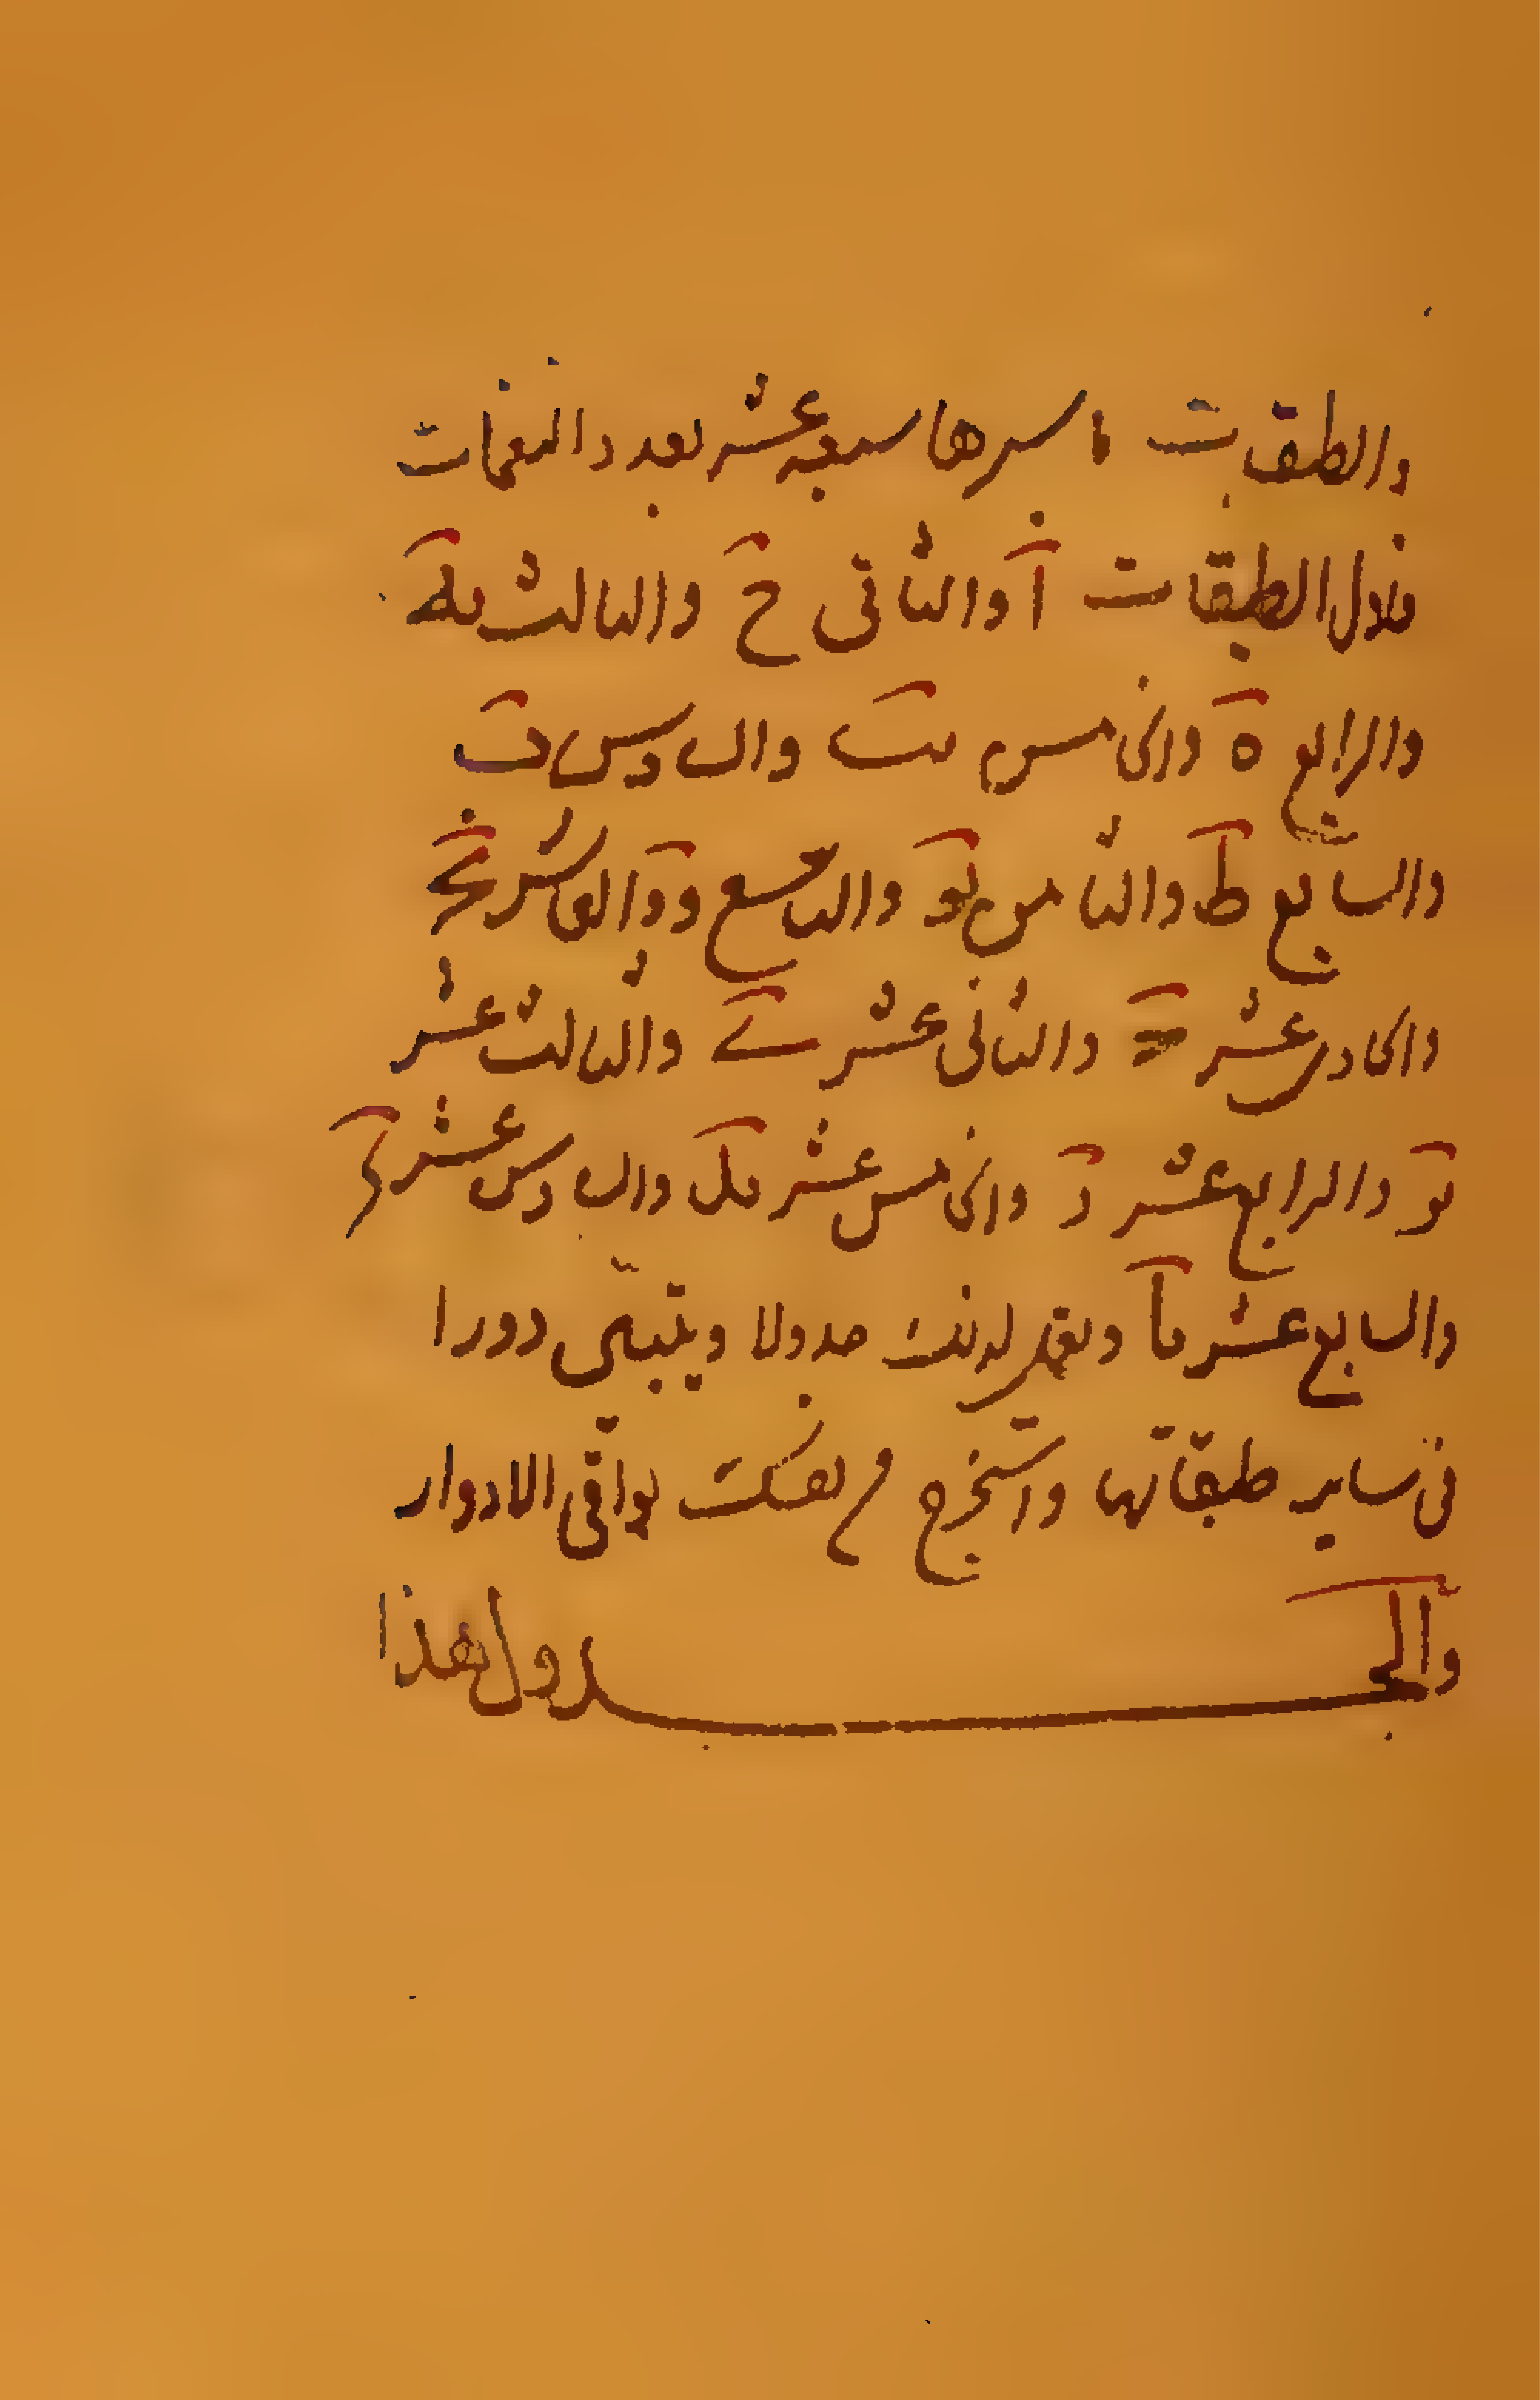 والطبقات باسرها سبعة عشر بعدد النغمات
فاول الطبقات آ والثاني ح والثالث يه
والرابع ه والخامس يب والسادس ب
والسابع ط والثامن يو والتاسع و والعاشر يج
والحادي عشر والثاني عشر ي والثالث عشر
يز والرابع عشر د والخامس عشر يا والسادس عشر
والسابع عشر يا ولنقرر لذلك جدولا ويتبين دورا
في ساير طبقاتها واستخرج بفكرك بواقي الادوار
والجدول هذا